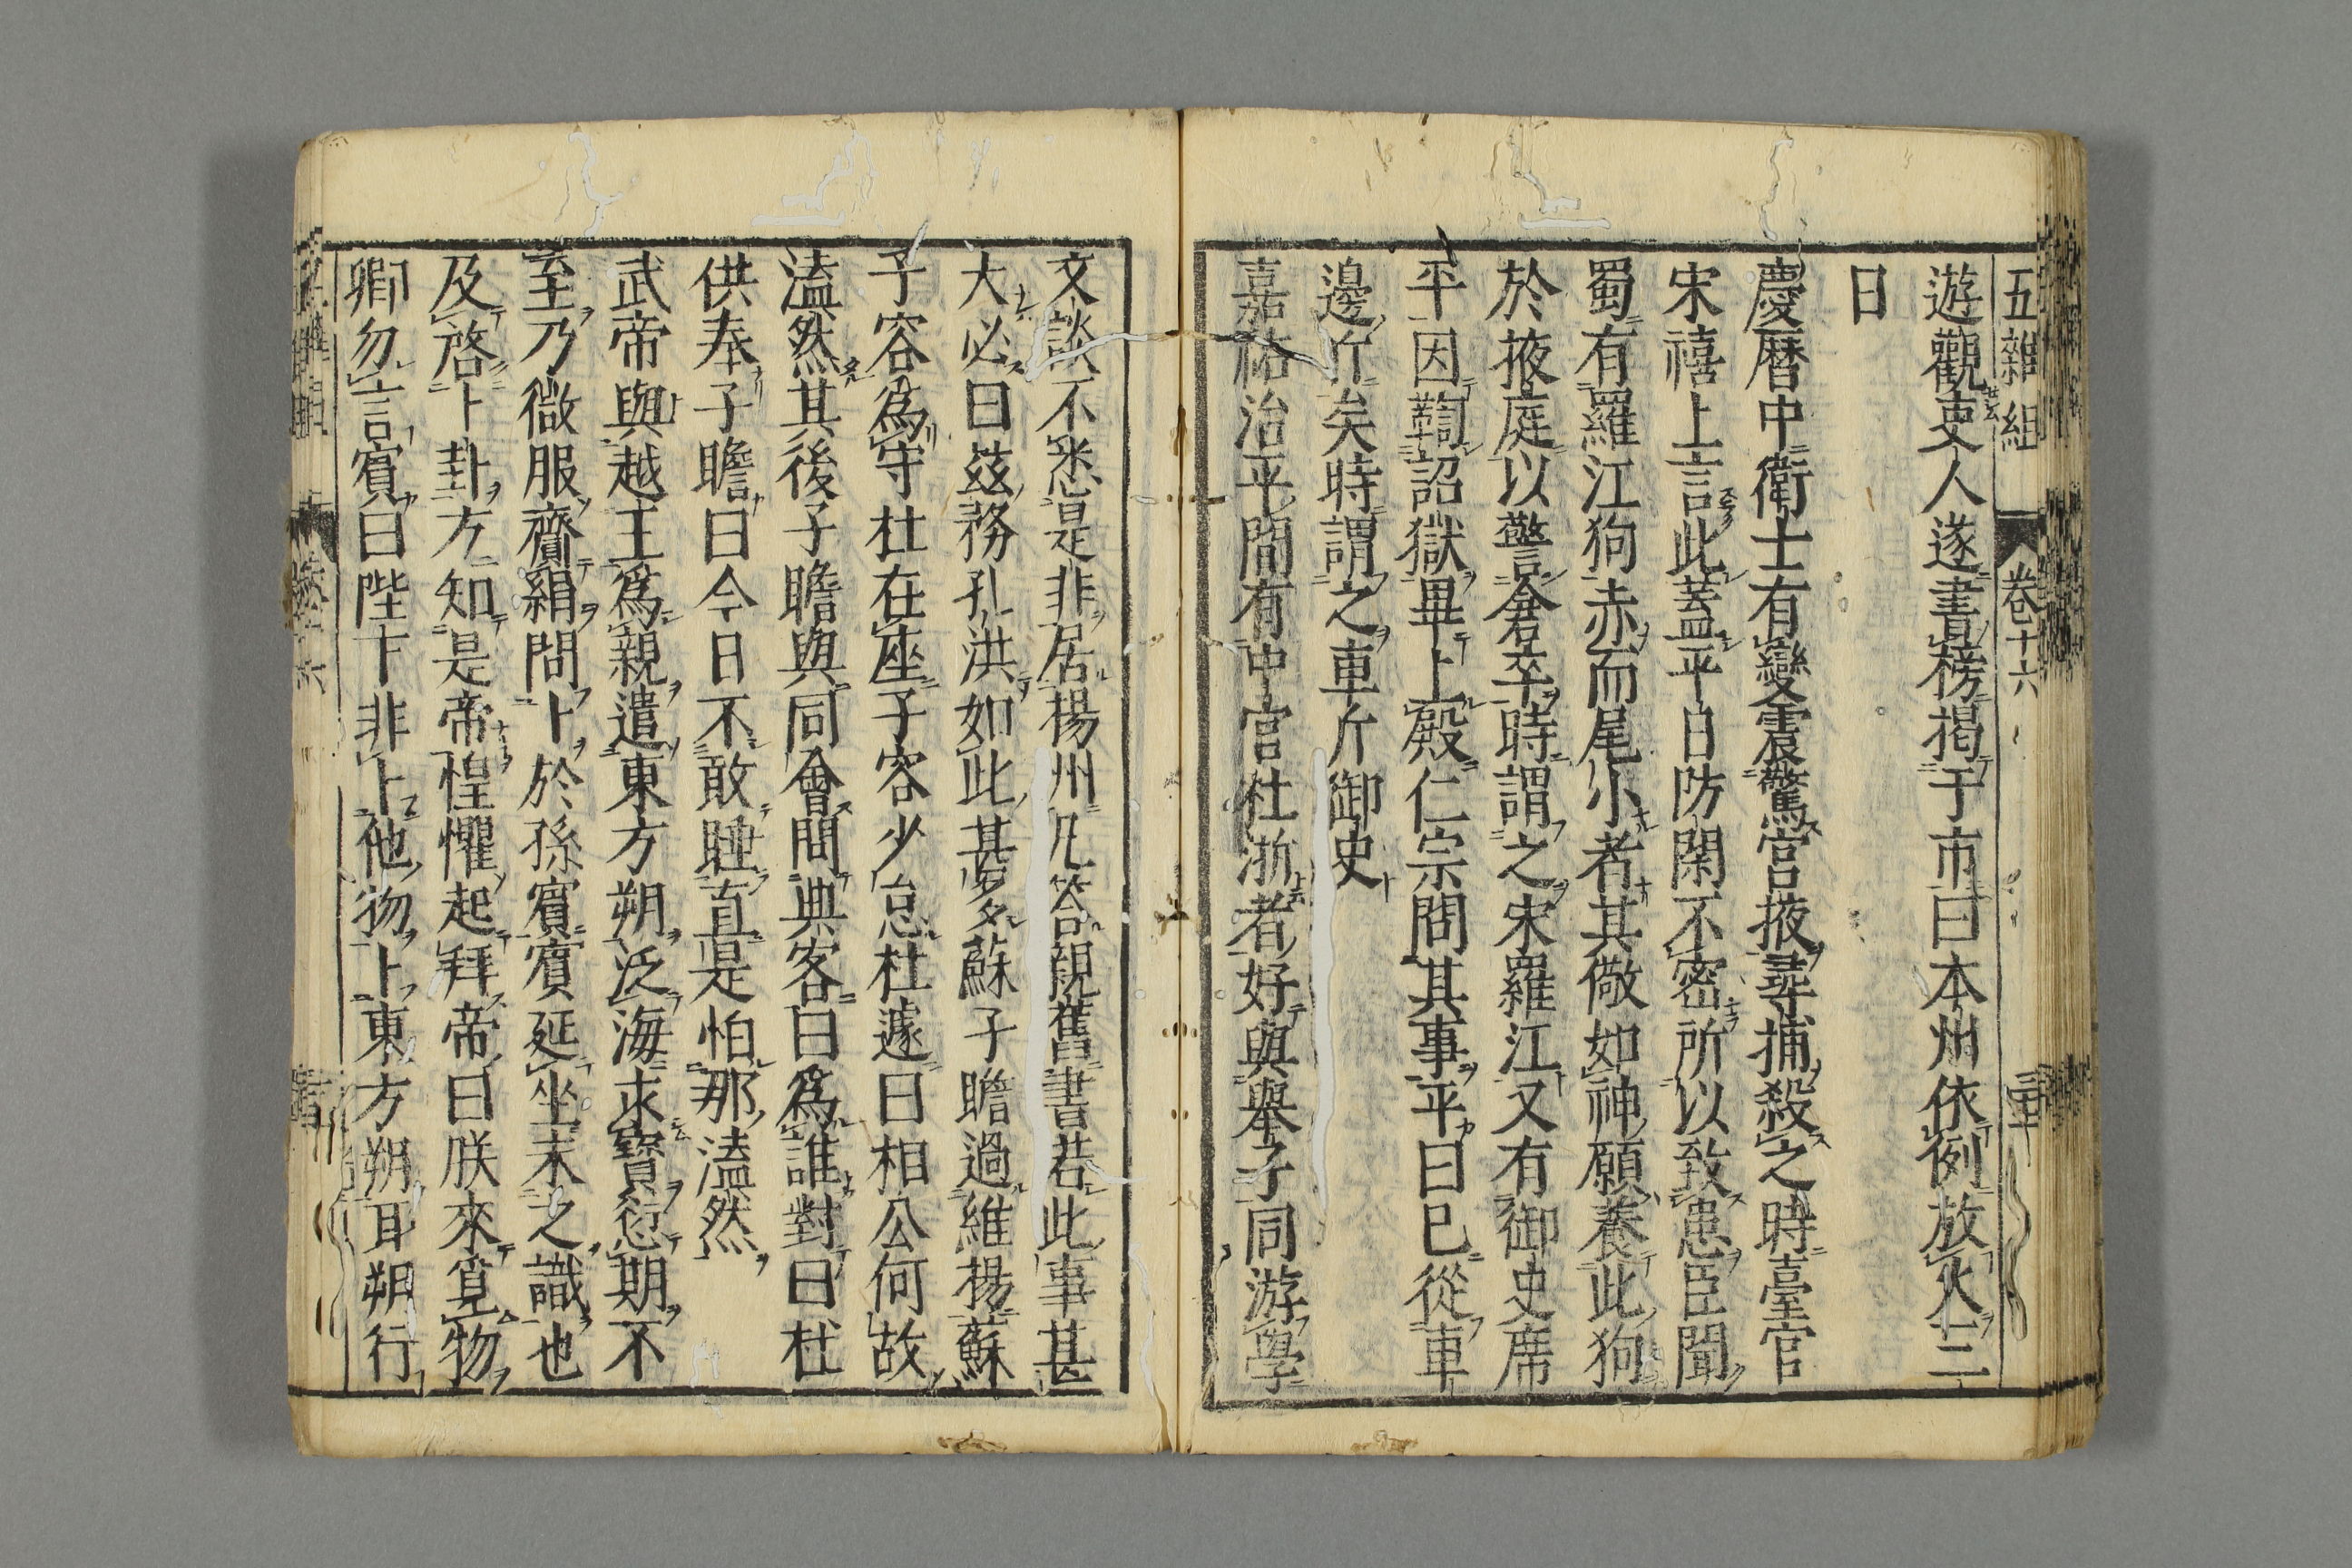 五雜組 卷十六 三十
遊觀吏人遂書榜揭于市曰本州依例放火三
日
慶曆中衛士有變震驚宮掖尋捕殺之時臺官
宋禧上言此蓋平日防閑不密所以致患臣聞
蜀有羅江狗赤而尾小者其儆如神願養此狗
於掖庭以警倉卒時謂之宋羅江又有御史席
平因鞫詔獄畢上殿仁宗問其事平曰巳從車
邊斤矣時謂之車斤御史
嘉祐治平間有中官杜浙者好與舉子同游學
文談不悉是非居楊州凡答親舊書若此事甚
大必曰茲務孔洪如此甚多蘇子瞻過維楊蘇
子容爲守杜在座子容少怠杜遽曰相公何故
溘然其後子瞻與同會問典客曰爲誰對曰杜
供奉子瞻曰今日不敢睡直是怕那溘然
武帝與越王爲親遣東方朔泛海求寶愆期不
至乃微服齎絹問卜於孫賓賓延坐未之識也
及啓卜卦方知是帝惶懼起拜帝曰朕來筧物
卿勿言賓曰陛下非卜他物卜東方朔耳朔行